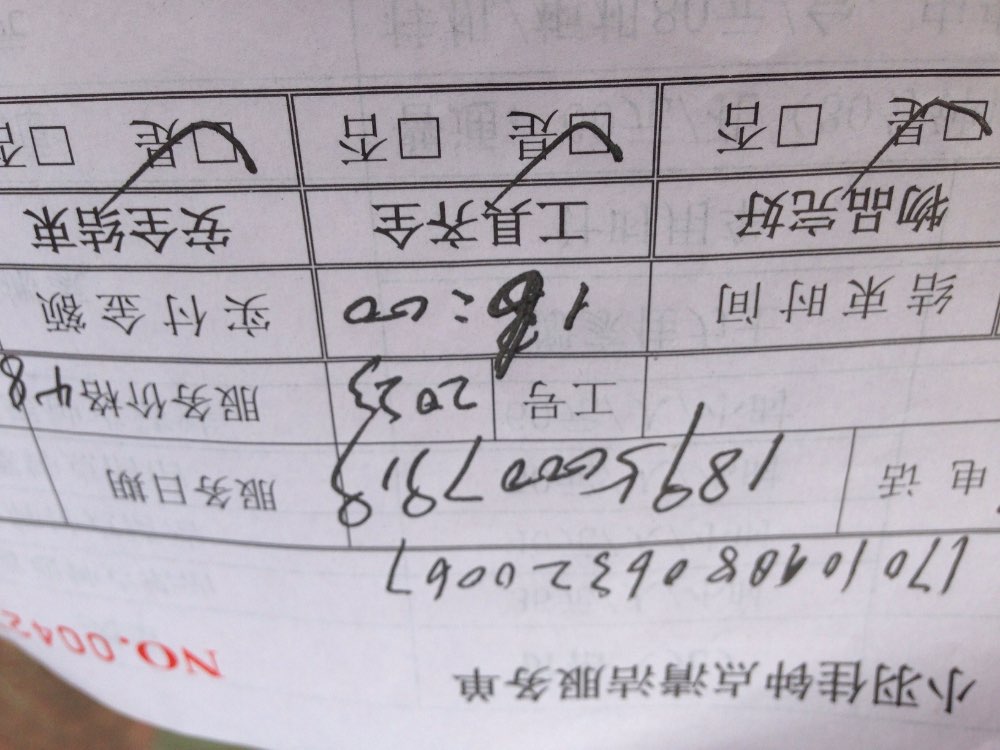 小羽佳钟点清洁服务单 NO.0042
电话 18950007918 服务日期
工号 2023 服务价格 48
结束时间 实付金额
物品完好 工具齐全 安全结束
☑是 □否 ☑是 □否 ☑是 □否